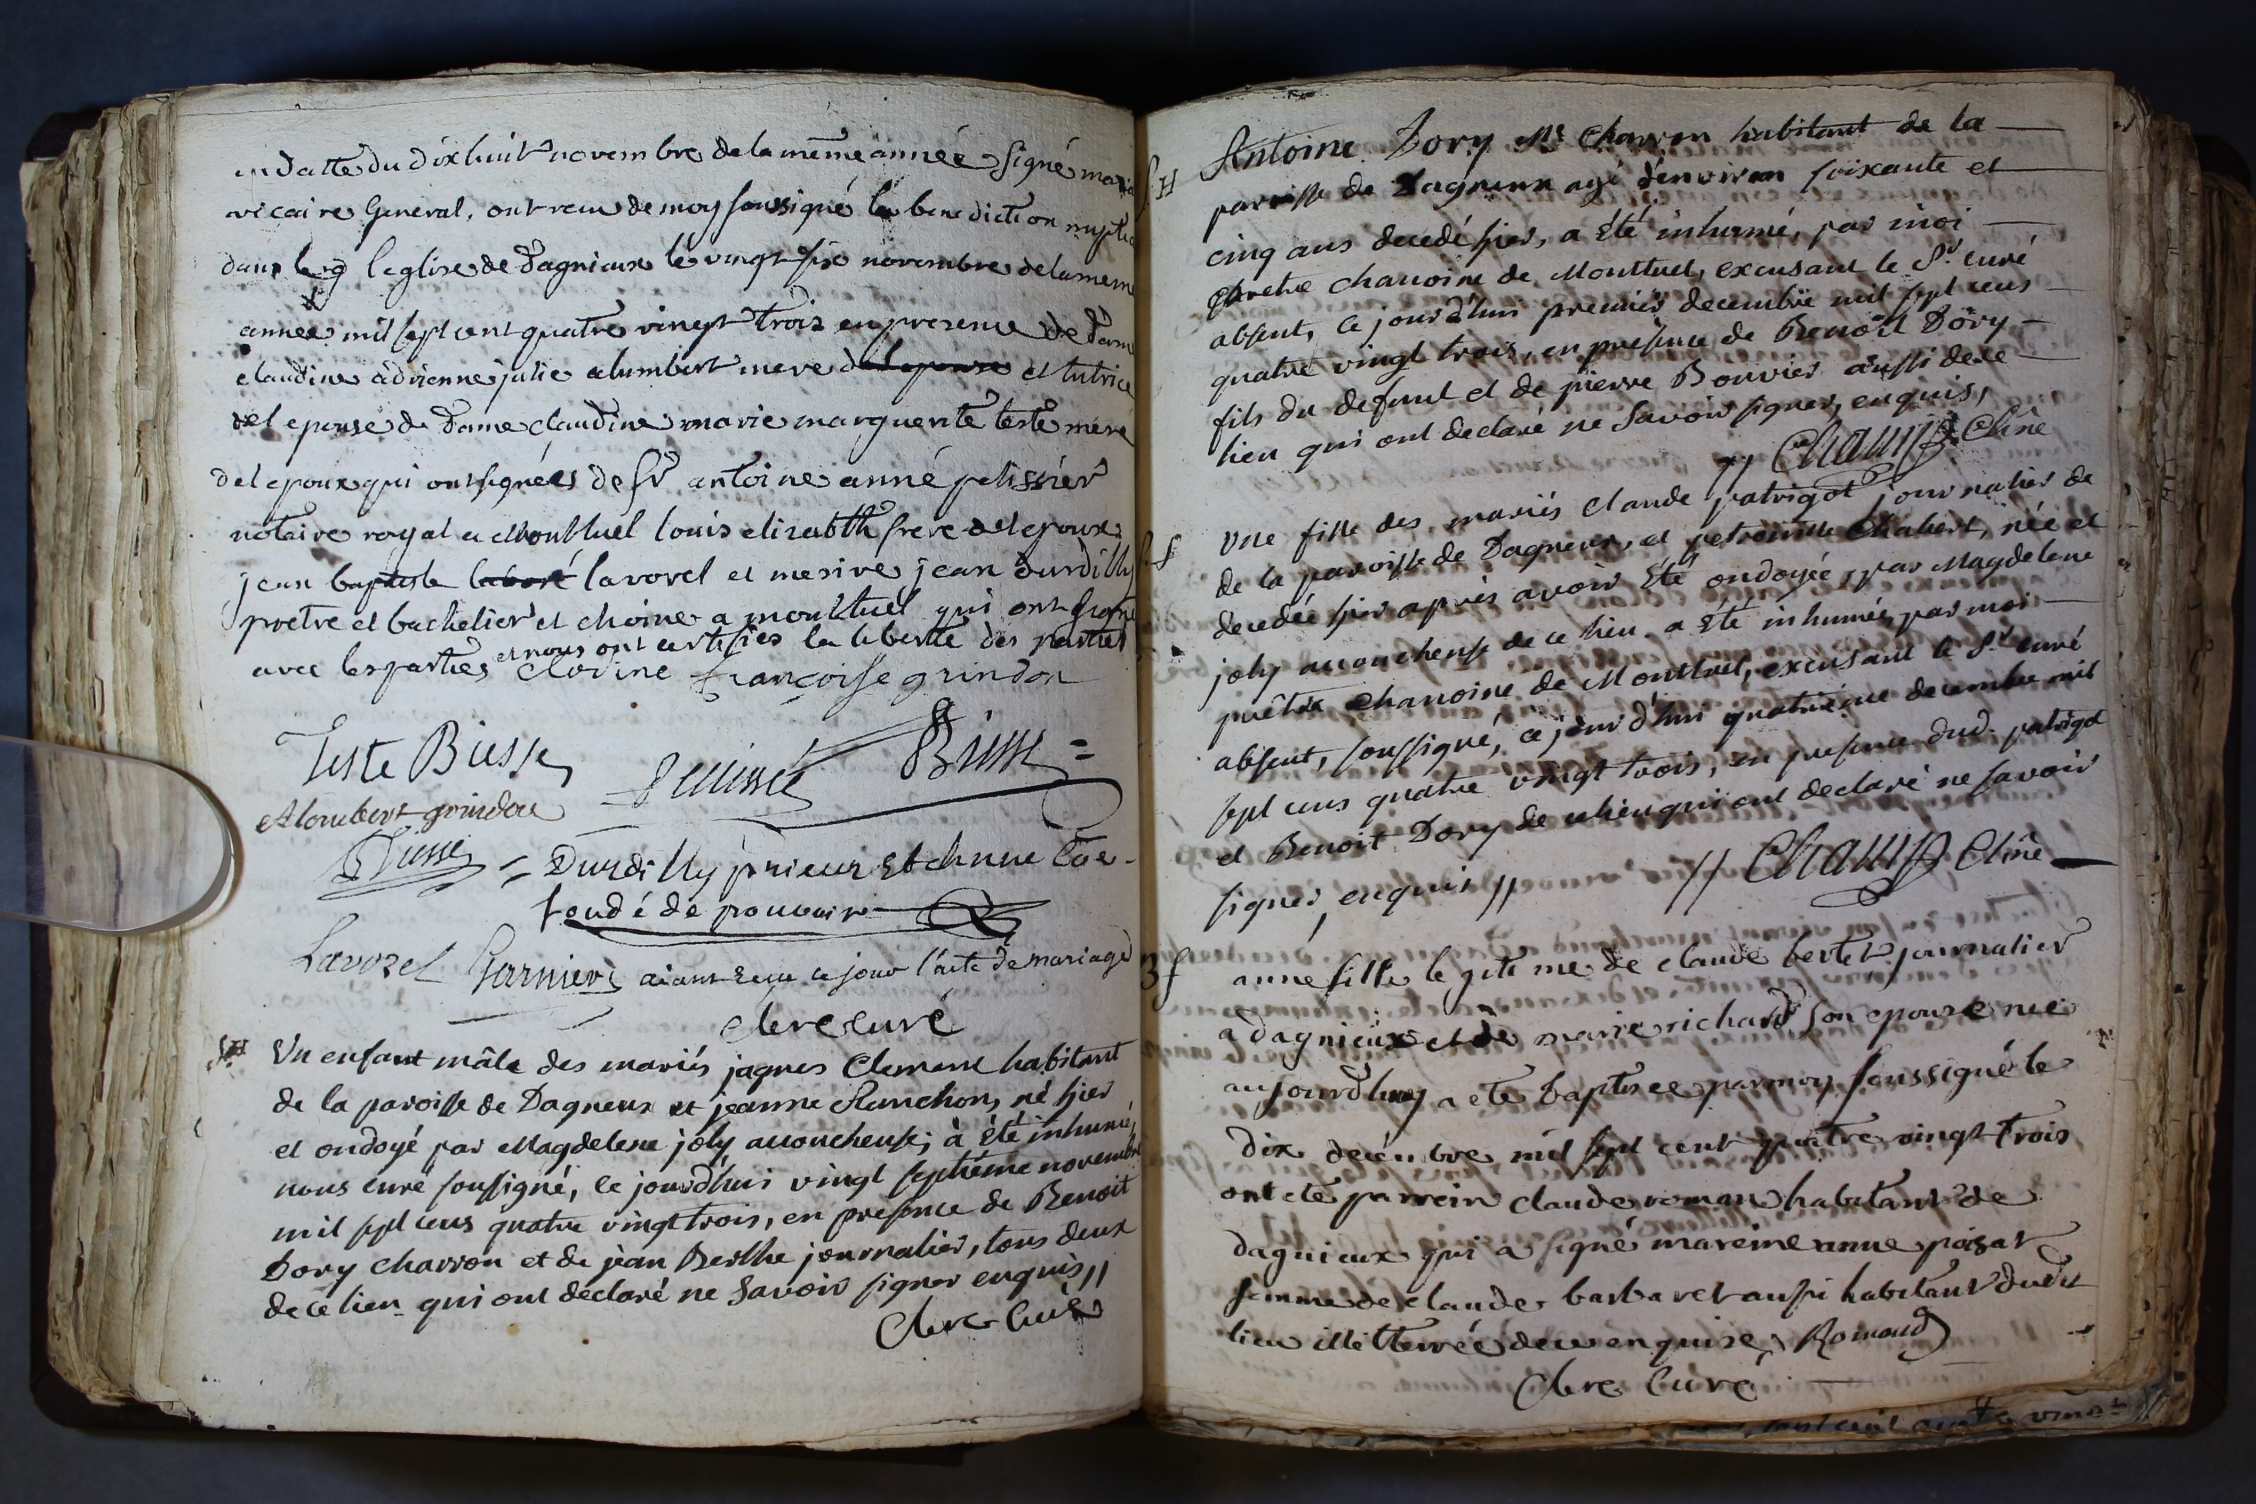 en datte du dix huit novembre de la même année signé
vicaire General, ont recu de moy soussigné la benediction nuptia
dans l'eglise de dagnieux le vingt six novembre de la meme
année mil sept cent quatre vingt trois en presence de dame
claudine adrienne julie alumbert mere de lepouse et tutrice
de l epouse de dame claudine marie marguerite teste mere
de l epoux qui ont signées de sr antoine anné pelissier
notaire royal a montluel louis elizabtth frere de l epoux
jean baptiste lavorel et mesire jean durdilly
pretre et bachelier et choine a montluel qui ont signé
avec les parties et nous ont certifies la liberté des parties
clodine françoise grindon
Teste Biesse
Pelissié
Biesse
Aloubert grindon
Biesse
Durdilly prieur et chnne
fondé de pouvoir
Lavorel Garnier aiant recu ce jour l'acte de mariage
Clere curé
SH
Un enfant mâle des mariés jaques Clement habitant
de la paroisse de Dagneux et jeanne Planchon, né hier
et ondoyé par Magdelene joly accoucheuse, à été inhumé,
nous curé soussigné, ce jourd'hui vingt septième novembre
mil sept cens quatre vingt trois, en presence de Benoit
Dory charron et de jean Berthe journalier, tous deux
de ce lien qui ont déclaré ne savoir signer enquis //
Clere Curé
SH
Antoine Dory Me Charron habitant de la
paroisse de Dagneux agé d'environ soixante et
cinq ans decedé hier, a été inhumé, par moi
prêtre chanoine de Montluel, excusant le Sr. curé
absent, ce jourd'hui premier decembre mil sept cens
quatre vingt trois, en presence de Benoit Dory
fils du defunt et de pierre Bouvier aussi de ce
lieu qui ont declaré ne savoir signer, enquis,
//
S f
Une fille des mariés Claude patrigot journalier de
de la paroisse de Dagneux, et petronille Chabert, née et
decedée hier après avoir été ondoyée, par Magdelene
joly accoucheuse de ce lieu a été inhumée, par moi
prêtre Chanoine de Montluel, excusant le Sr. curé
absent, soussigné, ce jourd'hui quatrieme decembre mil
sept cens quatre vingt trois, en presence dud. patrigot
et Benoit Dory de ce lieu qui ont declaré ne savoir
signer, enquis //
//
B f
anne fille legitime de claude bertet journalier
a dagnieux et de marie richard son epouse née
aujourdhuy a eté baptisée par moy soussigné le
dix décembre mil sept cent quatre vingt trois
ont eté parrein claude roman habitant de
dagnieux qui a signé mareine anne poisat
femme de claude barbaret aussi habitant dudit
lieu illitterrée de ce enquise Romand
Clere Curé